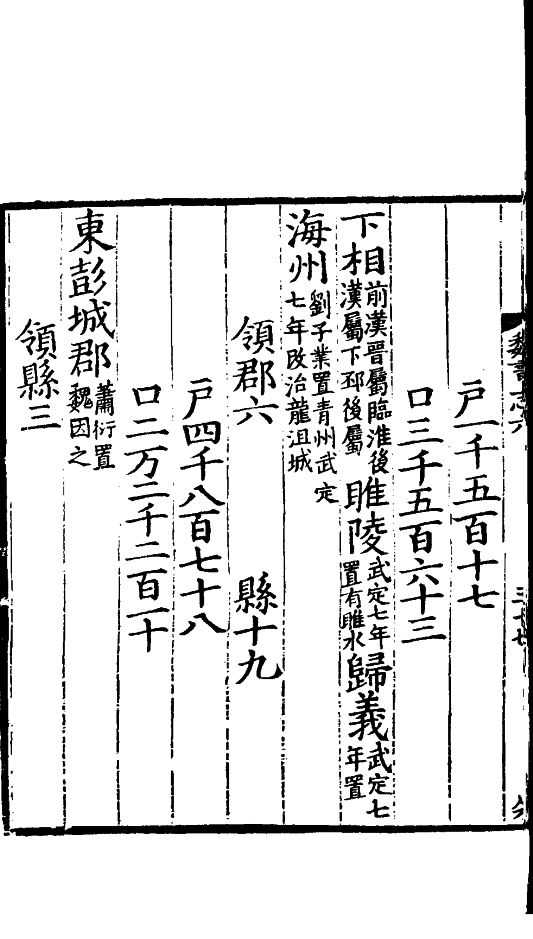 魏書志六
户一千五百十七
口三千五百六十三
下相前漢晉屬臨淮後漢屬下邳後屬睢陵武定七年置有睢水歸義武定七年置
海州劉子業置青州武定七年改治龍沮城
領郡六　縣十九
户四千八百七十八
口二万二千二百一十
東彭城郡蕭衍置魏因之
領縣三